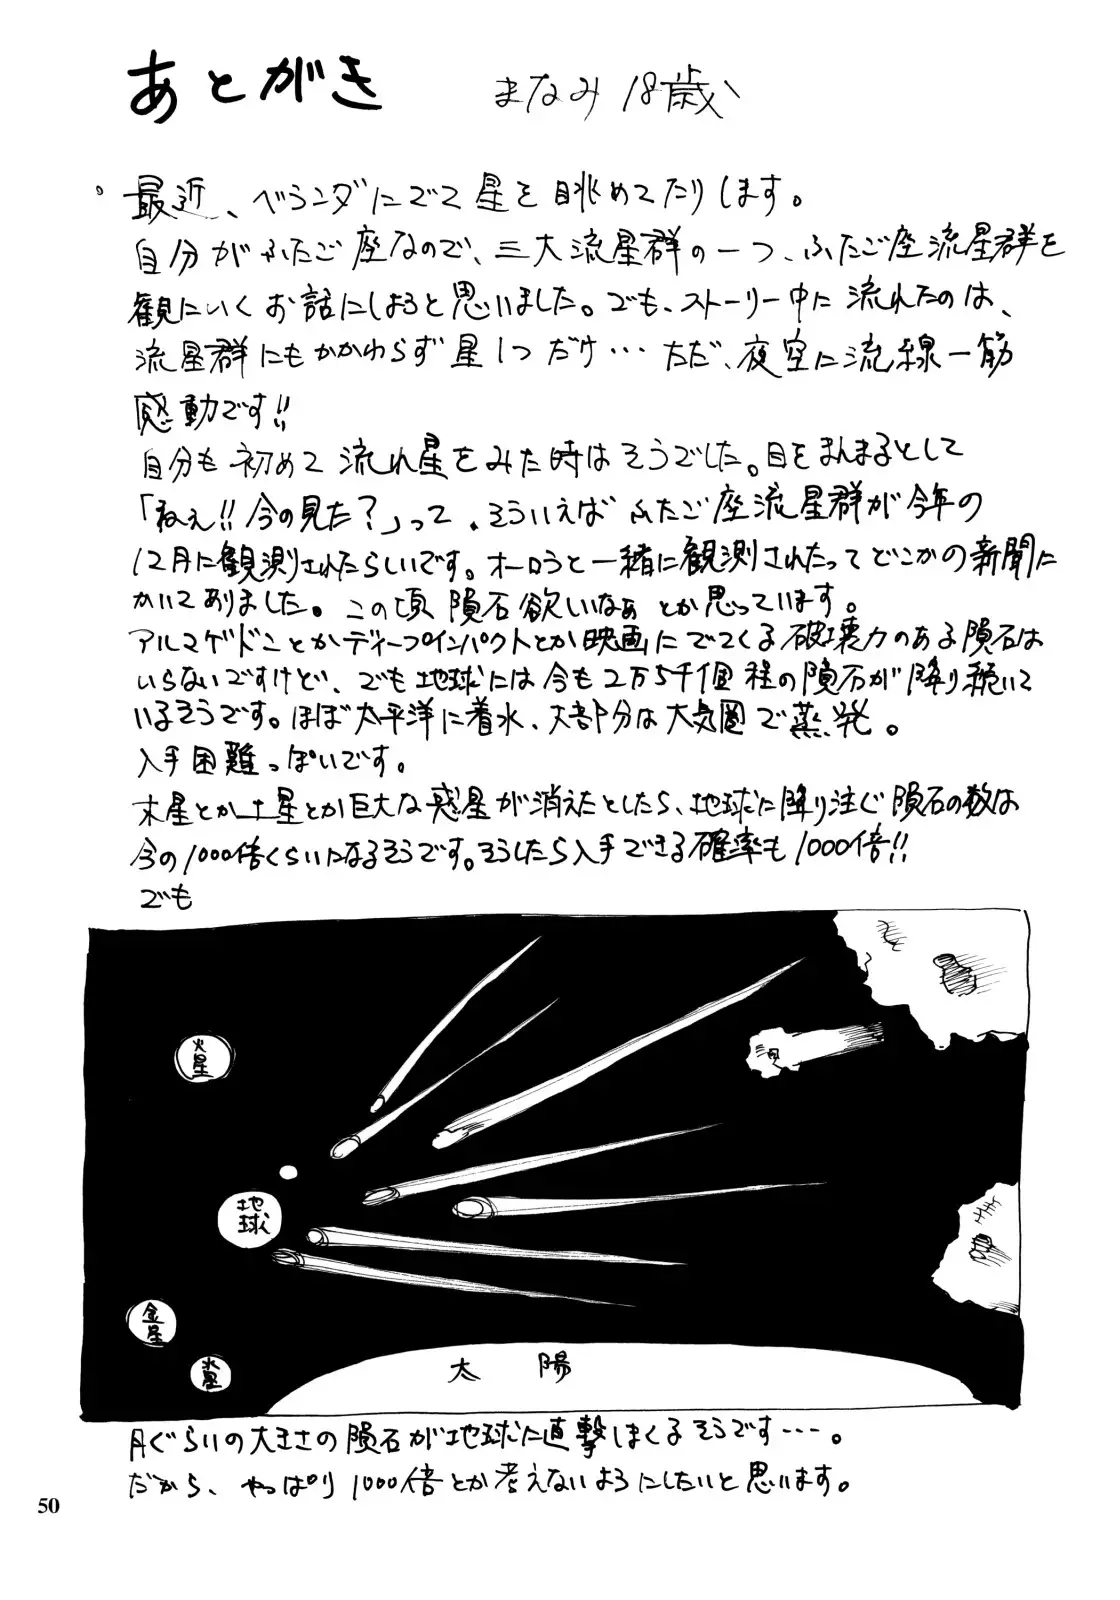 あとがき まなみ 18歳
。最近、ベランダにでて星を眺めてたりします。
自分がふたご座なので、三大流星群の一つ、ふたご座流星群を
観にいくお話にしようと思いました。でも、ストーリー中に流れたのは、
流星群にもかかわらず星1つだけ…ただ、夜空に流線一筋
感動です!!
自分も初めて流れ星をみた時はそうでした。目をまんまるとして
「ねぇ!!今の見た?」って。そういえばふたご座流星群が今年の
12月に観測されたらしいです。オーロラと一緒に観測されたってどこかの新聞に
かいてありました。この頃隕石欲しいなぁとか思っています。
アルマゲドンとかディープインパクトとか映画にでてくる破壊力のある隕石は
いらないですけど、でも地球には今も2万5千個程の隕石が降り続いて
いるそうです。ほぼ太平洋に着水、大部分は大気圏で蒸発。
入手困難っぽいです。
木星とか土星とか巨大な惑星が消えたとしたら、地球に降り注ぐ隕石の数は
今の1000倍くらいになるそうです。そうしたら入手できる確率も1000倍!!
でも
火星
地球
金星
水星
太陽
月ぐらいの大きさの隕石が地球に直撃しまくるそうです…。
だから、やっぱり1000倍とか考えないようにしたいと思います。
50